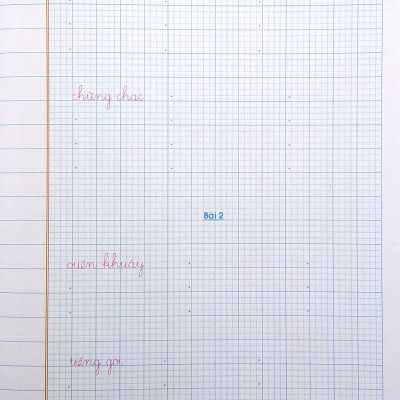 chững chạc
Bài 2
quên khuấy
tiếng gọi